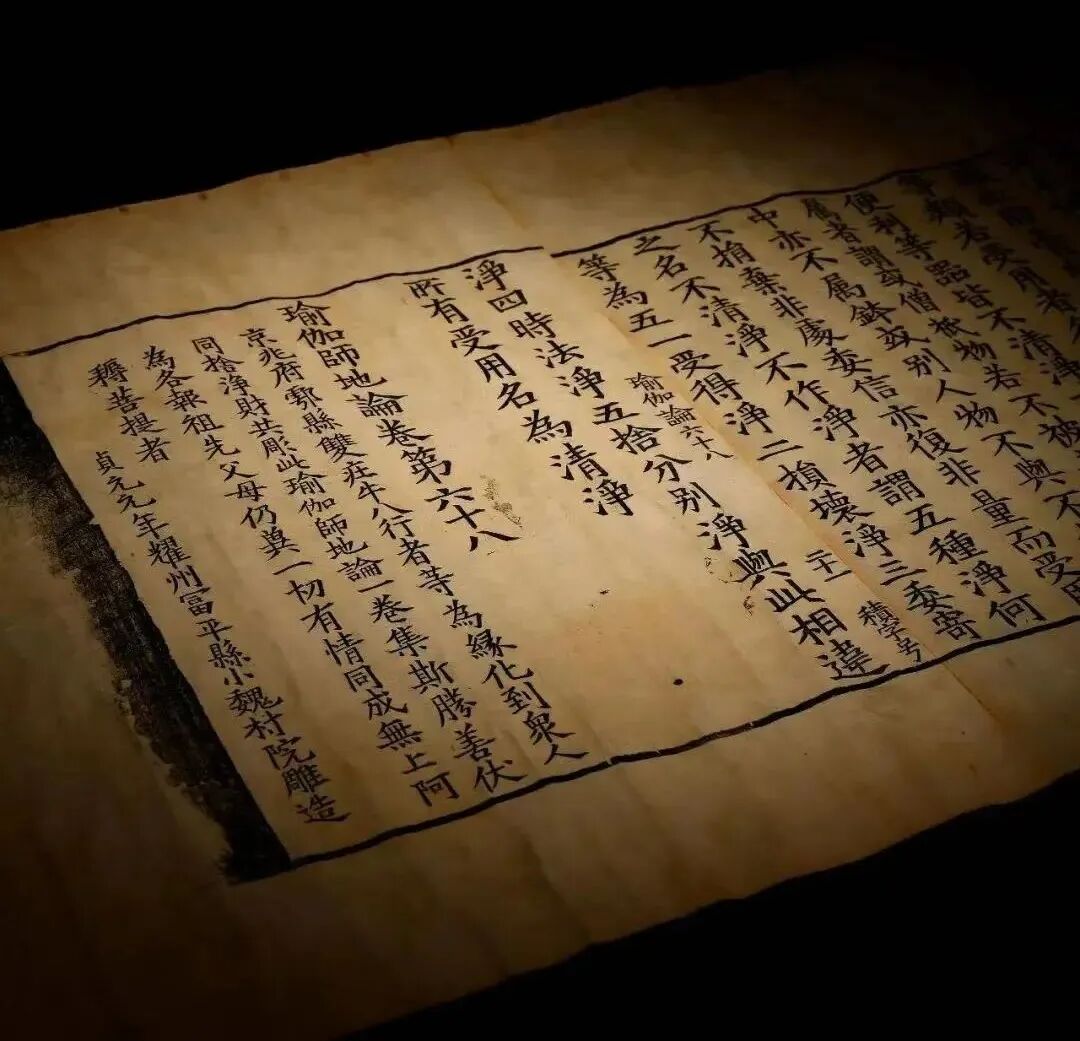 類若受用者
便利等器皆不清淨
屬者謂或僧祇物若不被
中亦不屬鉢或別人物不與不
不捐棄非處委信亦復非量而受用
之名不清淨不作淨者謂五種淨何
等為五一受得淨二損壞淨三委寄
瑜伽論六十八 二十一 積字号
淨四時法淨五捨分別淨與此相違
所有受用名為清淨
瑜伽師地論卷第六十八
京兆府鄠縣雙莊牛八行者等為緣化到衆人
同捨淨財共彫此瑜伽師地論一卷集斯勝善伏
為各報祖先父母仍兾一切有情同成無上阿
耨菩提者
貞元元年耀州富平縣小魏村院雕造